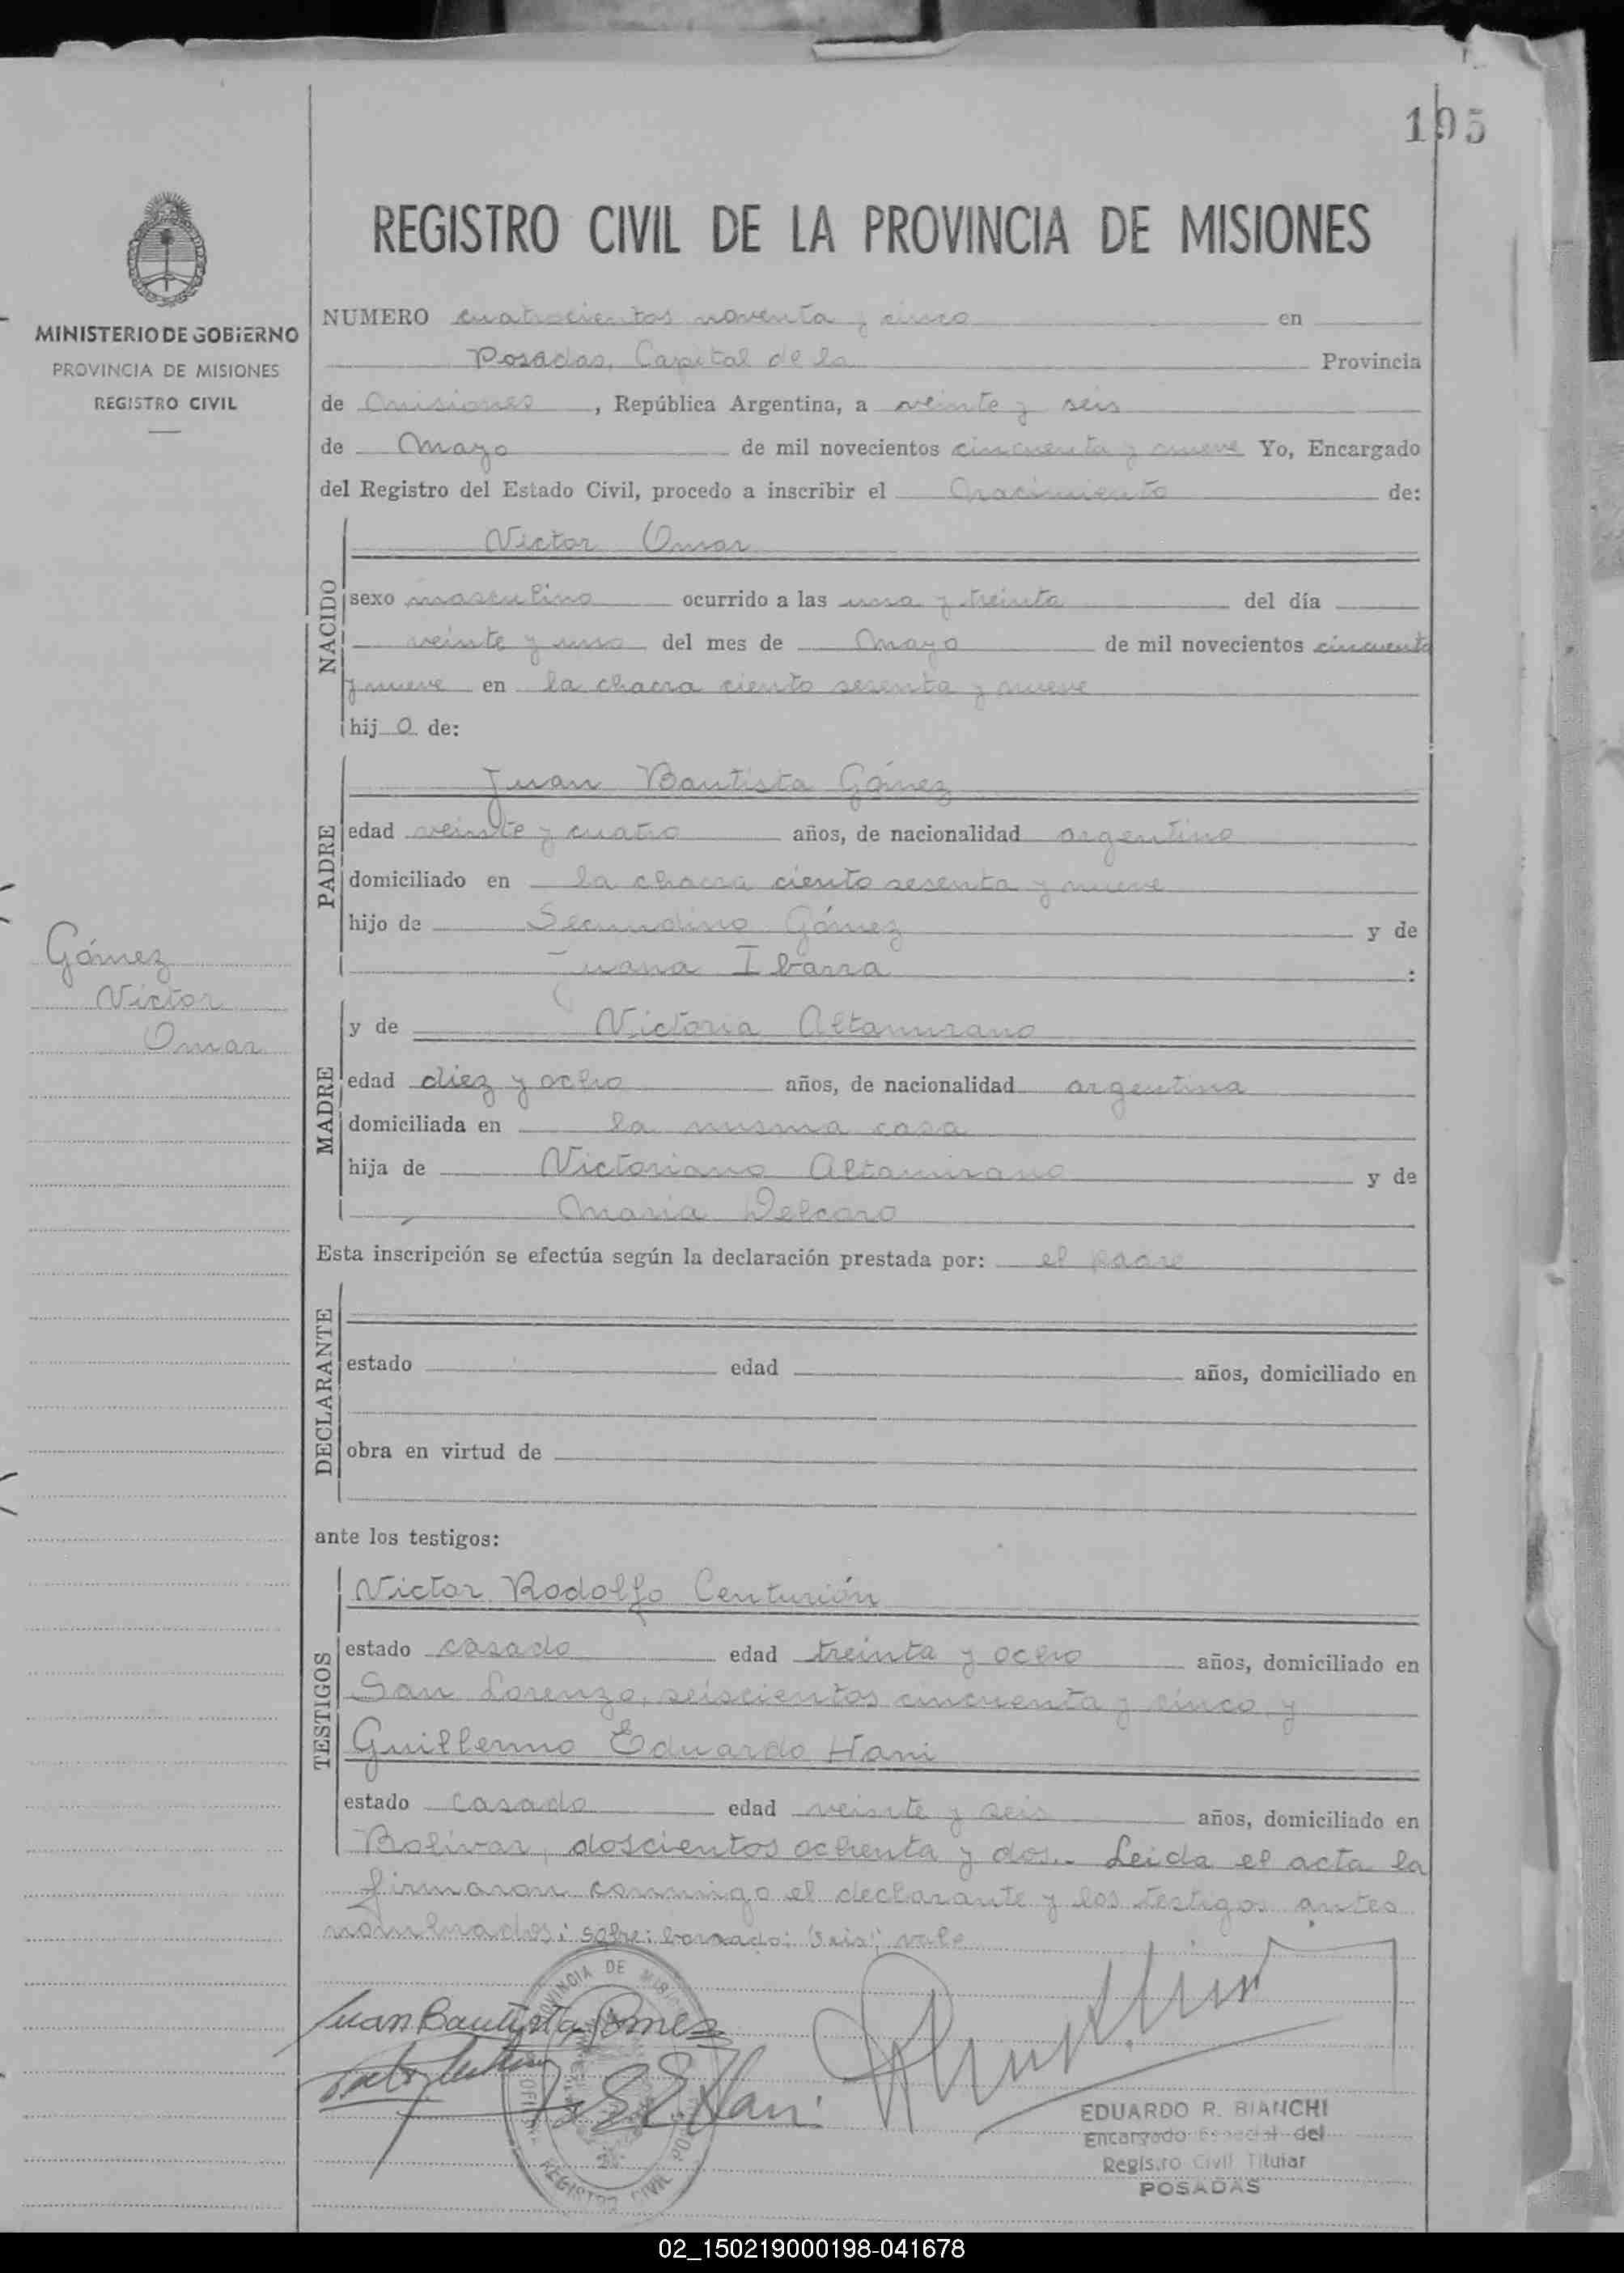 195
MINISTERIO DE GOBIERNO
PROVINCIA DE MISIONES
REGISTRO CIVIL
REGISTRO CIVIL DE LA PROVINCIA DE MISIONES
NUMERO cuatrocientos noventa y cinco en
Posadas, Capital de la Provincia
de Misiones, República Argentina, a veinte y seis
de Mayo de mil novecientos cincuenta y nueve Yo, Encargado
del Registro del Estado Civil, procedo a inscribir el Nacimiento de:
NACIDO
Victor Omar
sexo masculino ocurrido a las una y treinta del día
veinte y uno del mes de Mayo de mil novecientos cincuenta
y nueve en la chacra ciento sesenta y nueve
hijo de:
PADRE
Juan Bautista Gómez
edad veinte y cuatro años, de nacionalidad argentino
domiciliado en la chacra ciento sesenta y nueve
hijo de Secundino Gómez y de
Juana Ibarra :
Gómez
Victor
Omar
MADRE
y de Victoria Altamirano
edad diez y ocho años, de nacionalidad argentina
domiciliada en la misma casa
hija de Victoriano Altamirano y de
Maria Delcaro
Esta inscripción se efectúa según la declaración prestada por: el padre
DECLARANTE
estado edad años, domiciliado en
obra en virtud de
ante los testigos:
TESTIGOS
Victor Rodolfo Centurión
estado casado edad treinta y ocho años, domiciliado en
San Lorenzo, seiscientos cincuenta y cinco, y
Guillermo Eduardo Hani
estado casado edad veinte y seis años, domiciliado en
Bolivar, doscientos ochenta y dos.- Leida el acta la
firmaron conmigo el declarante y los testigos antes
nombrados: sobre: borrado: "seis"; vale
PROVINCIA DE
REGISTRO CIVIL
Juan Bautista Gomez
EDUARDO R. BIANCHI
Encargado Especial del
Registro Civil Titular
POSADAS
02_150219000198-041678